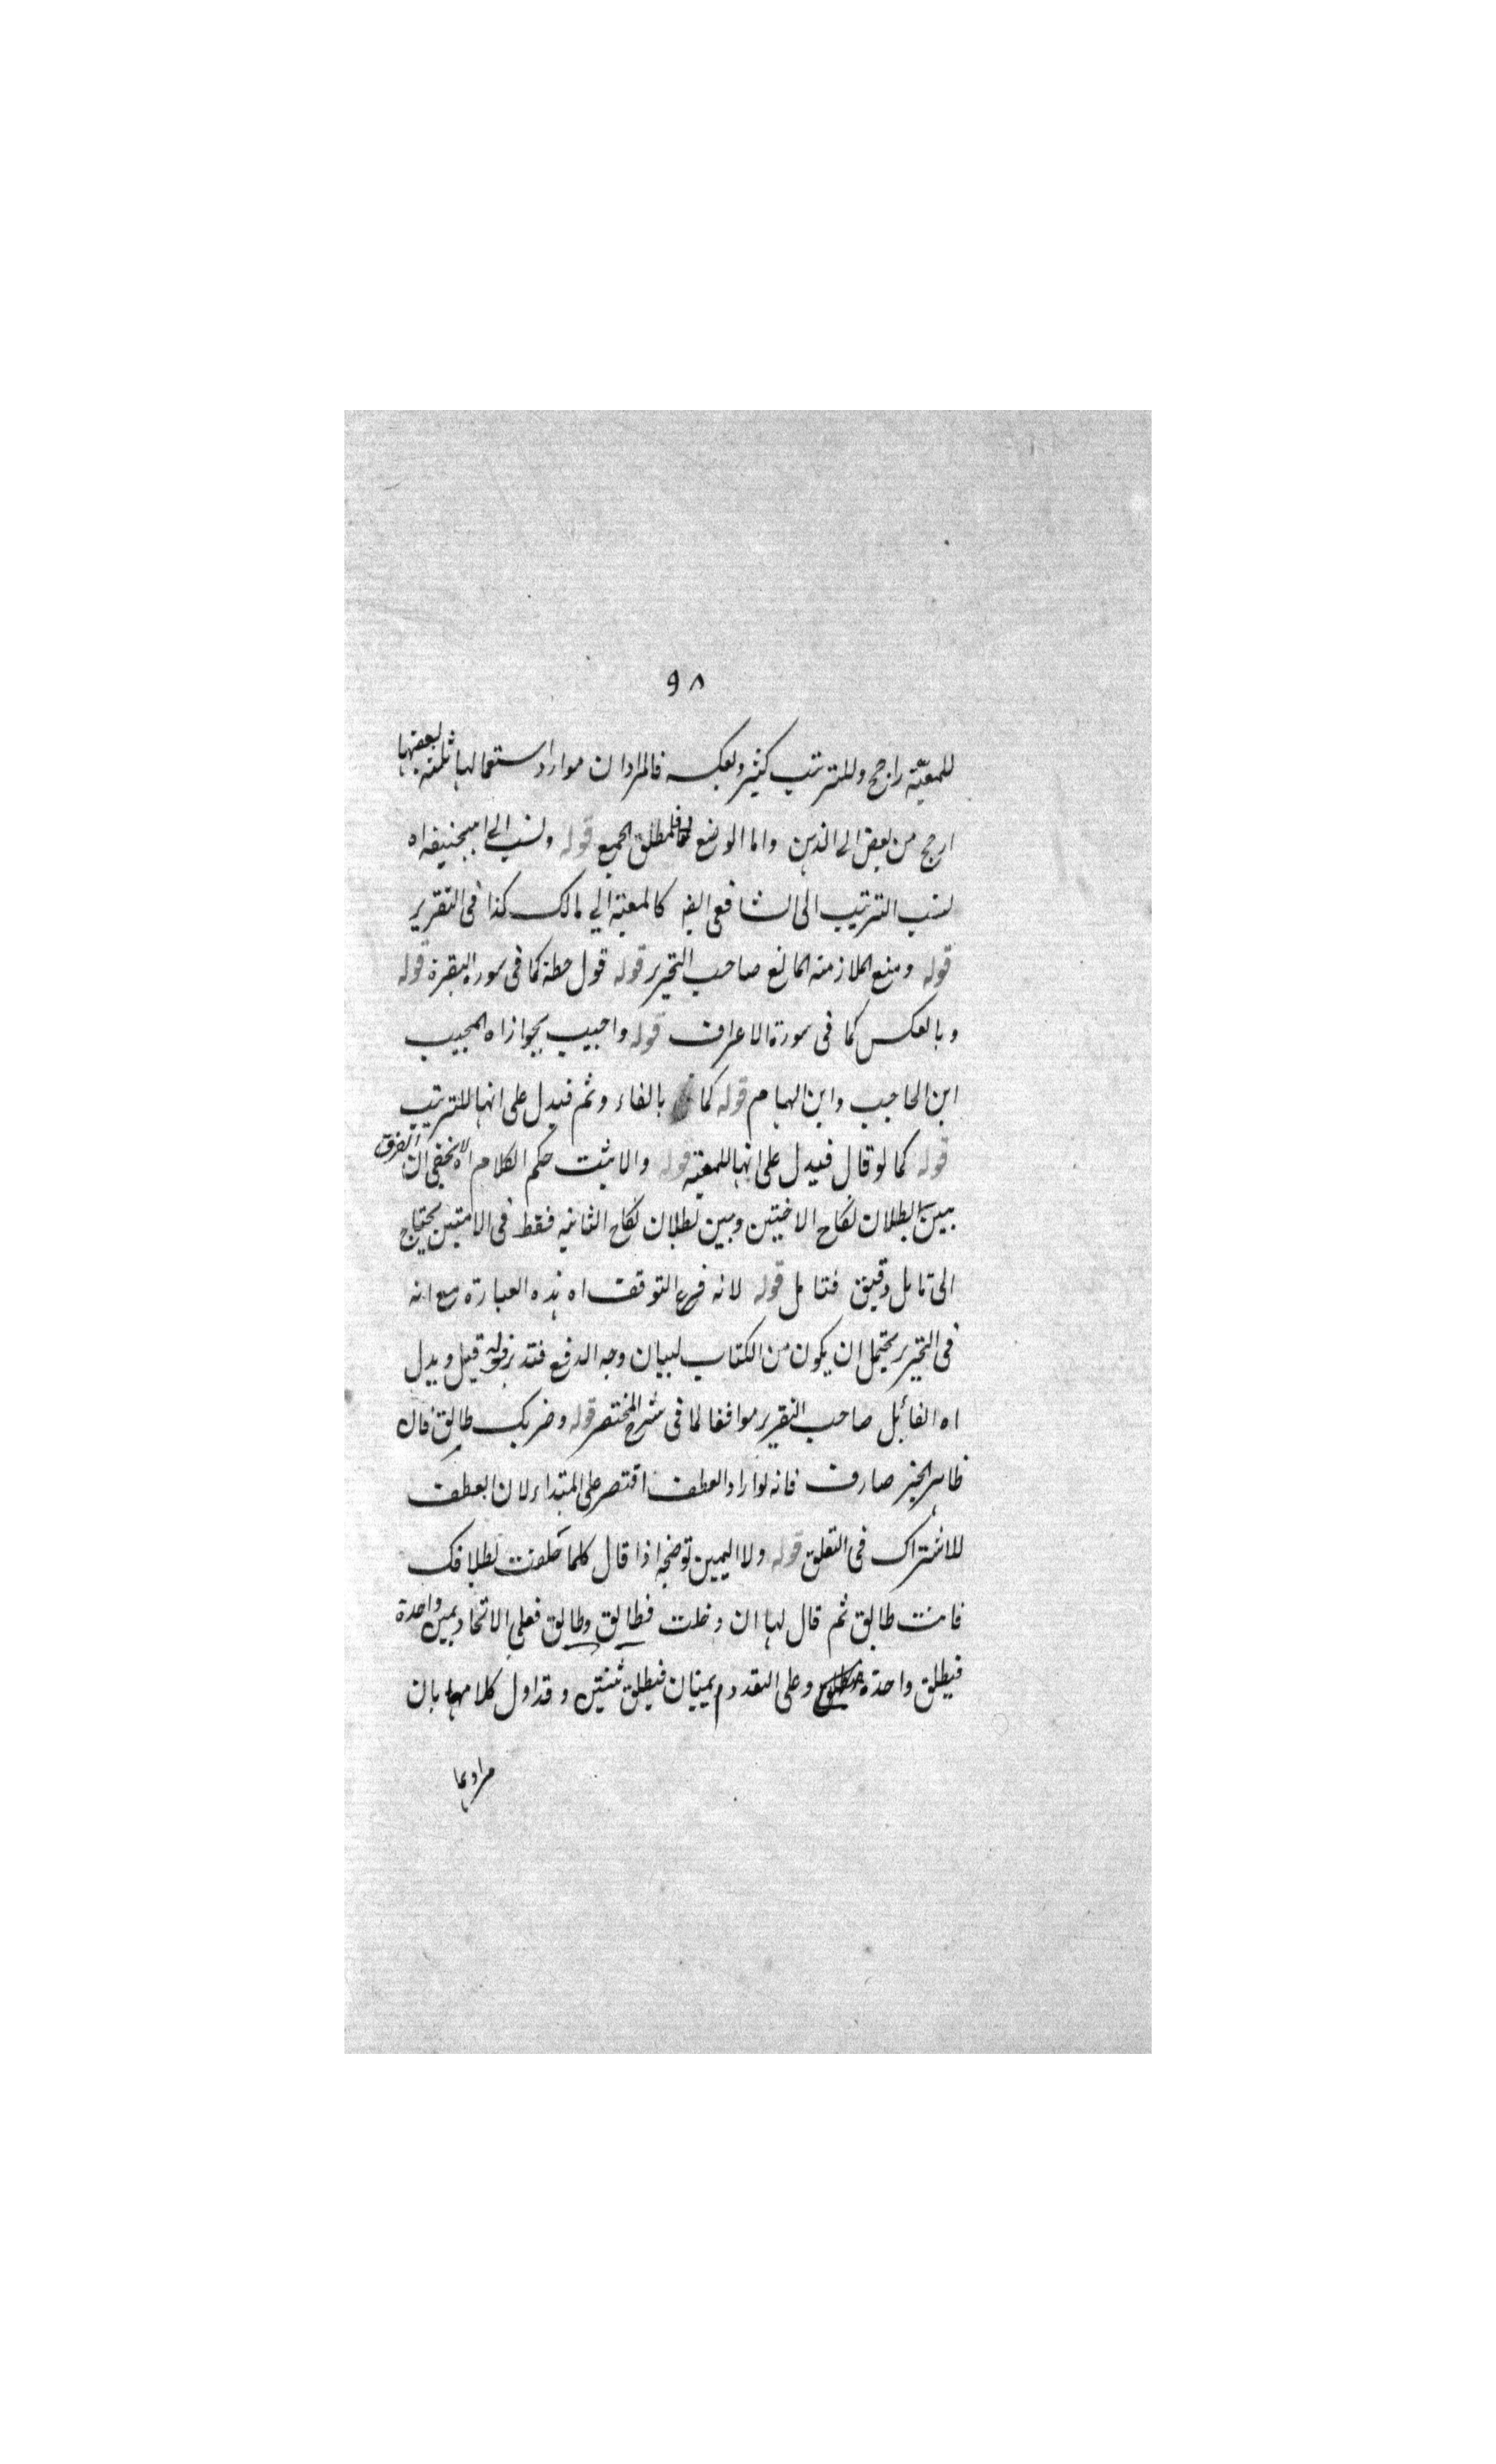 ٩٨
للمعيّة راجح وللترتيب كثير وبعكسه فالمراد ان موارد استعمالها ثلثه بعضها
ارجح من بعض الى الذهن واما الوضع فلمطلق الجمع قوله ونسب الى ابيحنيفه اه
نسب الترتيب الى الشافعى ايضه كالمعية الي مالك كذا فى التقرير
قوله ومنع الملازمته المانع صاحب التحرير قوله قول حطة كما فى سوره البقرة قوله
وبالعكس كما فى سورة الاعراف قوله واجيب بجوازاه المجيب
ابن الحاجب وابن الهمام قوله كما بالفاء وثم فيدل على انها للترتيب
قوله كما لو قال فيدل على انها للمعيّة قوله والا يثبت حكم الكلام اه لا يخفى ان الفرق
بين بطلان نكاح الاختين وبين بطلان نكاح الثانيه فقط فى الامتين يحتاج
الى تامل دقيق فتامل قوله لانه فرع التوقف اه هذه العبارة مع انه
فى التحرير يحتمل ان يكون من الكتاب لبيان وجه الدفع فتدبر قوله قيل ويدل
اه القائل صاحب التقرير موافقا لما فى شرح المختصر قوله وضربك طالق فان
ظاهر الخبر صارف فانه لو اراد العطف اقتصر على المبتداء لان العطف
للاشتراك فى التعلق قوله ولا اليمين توضيحه اذا قال كلما حلفت بطلاقك
فانت طالق ثم قال لها ان دخلت فطالق وطالق فعلى الاتحاد يمين واحدة
فيطلق واحدة وعلى التعدد م يمينان فيطلق ثنتين وقد اول كلامهما بان
مرادهما